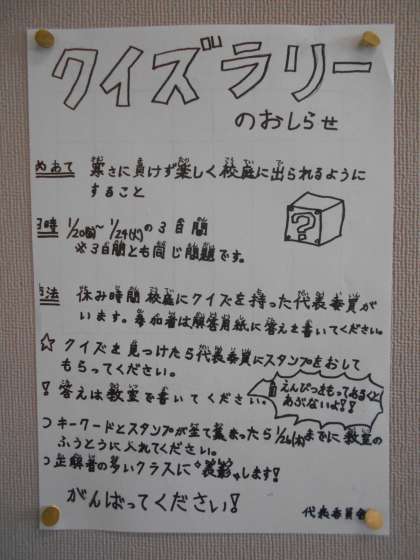 クイズラリー
のおしらせ
めあて 寒さに負けず楽しく校庭に出られるように
すること
日時 1/20(月)～1/24(火)の3日間
※3日間とも同じ問題です。
方法 休み時間 校庭にクイズを持った代表委員が
います。参加者は解答用紙に答えを書いてください。
☆ クイズを見つけたら代表委員にスタンプをおして
もらってください。
! 答えは教室で書いてください。
えんぴつをもってあるくと
あぶないよ!!
キーワードとスタンプが全て集まったら1/26(木)までに教室の
ふうとうに入れてください。
正解者の多いクラスに表彰します!
がんばってください!
代表委員会